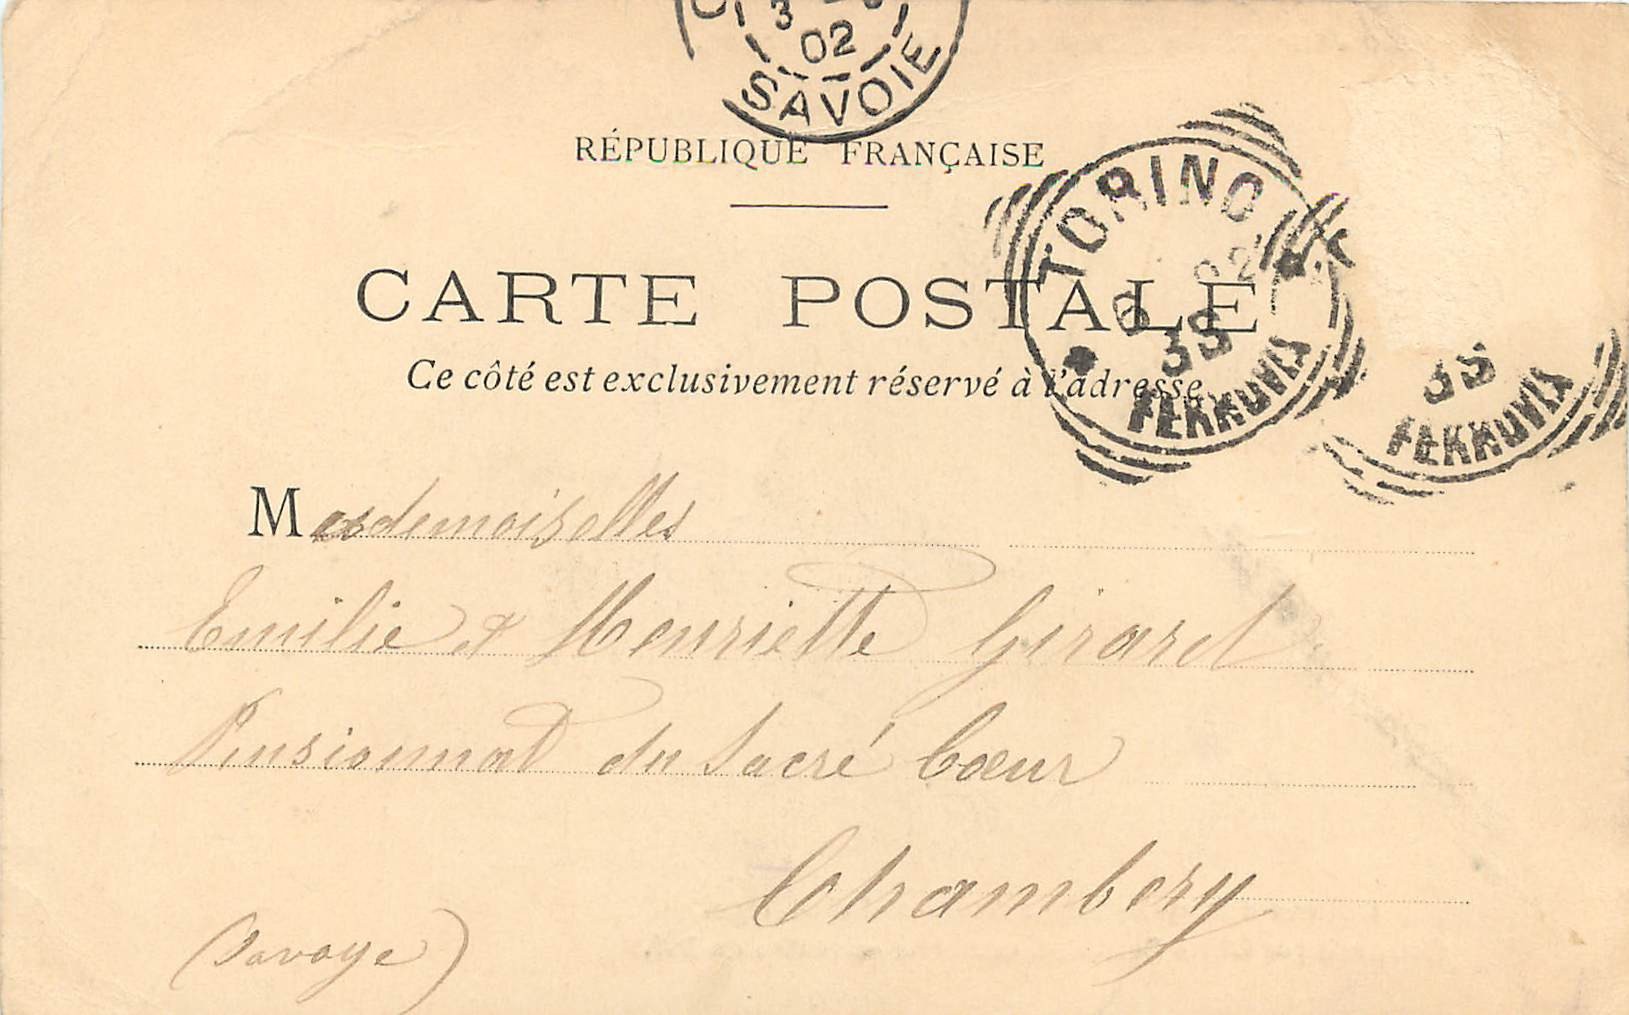 02
SAVOIE
RÉPUBLIQUE FRANÇAISE
TORINO
02
CARTE POSTALE
6
3S
3S
FERROVIA
FERROVIA
Ce côté est exclusivement réservé à l'adresse
Mesdemoiselles
Emilie & Henriette Girard
Pensionnat du Sacré Cœur
Chambery
(Savoye)